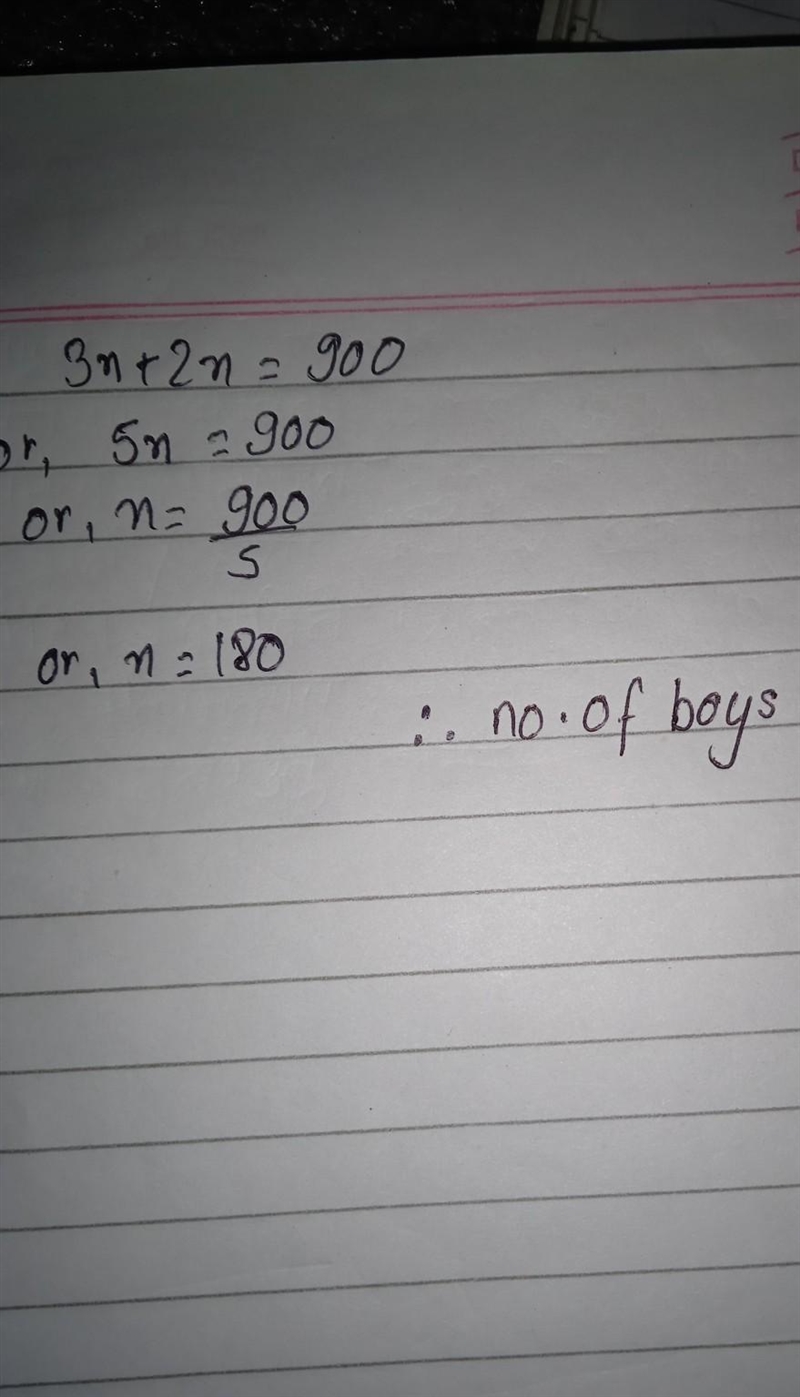 3n+2n = 900
or, 5n = 900
or, n = 900/5
or, n = 180
∴ no. of boys